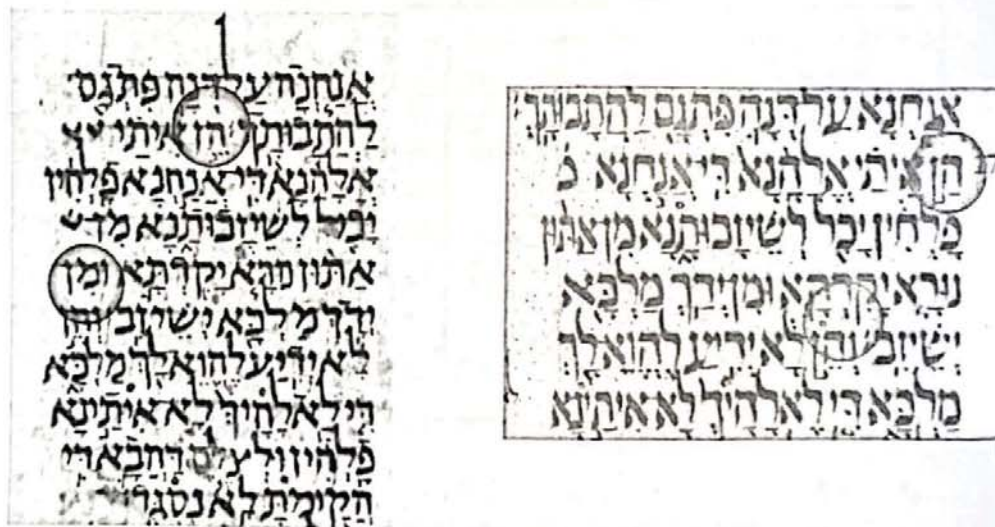 1
אֲנַחְנָה עַל דְּנָה פִּתְגָם
לַהֲתָבוּתָךְ הֵן אִיתַי
אֱלָהַנָא דִּי אֲנַחְנָא פָלְחִין
יָכִל לְשֵׁיזָבוּתַנָא
אַתּוּן נוּרָא יָקִדְתָּא וּמִן
יְדָךְ מַלְכָּא יְשֵׁיזִב וְהֵן
לָא יְדִיעַ לֶהֱוֵא לָךְ מַלְכָּא
דִּי לֵאלָהָיךְ לָא אִיתַינָא
פָלְחִין וּלְצֶלֶם דַּהֲבָא דִּי
הֲקֵימְתָּ לָא נִסְגֻּד
אֲנַחְנָא עַל דְּנָה פִּתְגָם לַהֲתָבוּתָךְ
הֵן אִיתַי אֱלָהַנָא דִּי אֲנַחְנָא
פָּלְחִין יָכִל לְשֵׁיזָבוּתַנָא מִן אַתּוּן
נוּרָא יָקִדְתָּא וּמִן יְדָךְ מַלְכָּא
יְשֵׁיזִב וְהֵן לָא יְדִיעַ לֶהֱוֵא לָךְ
מַלְכָּא דִּי לֵאלָהָיךְ לָא אִיתַינָא